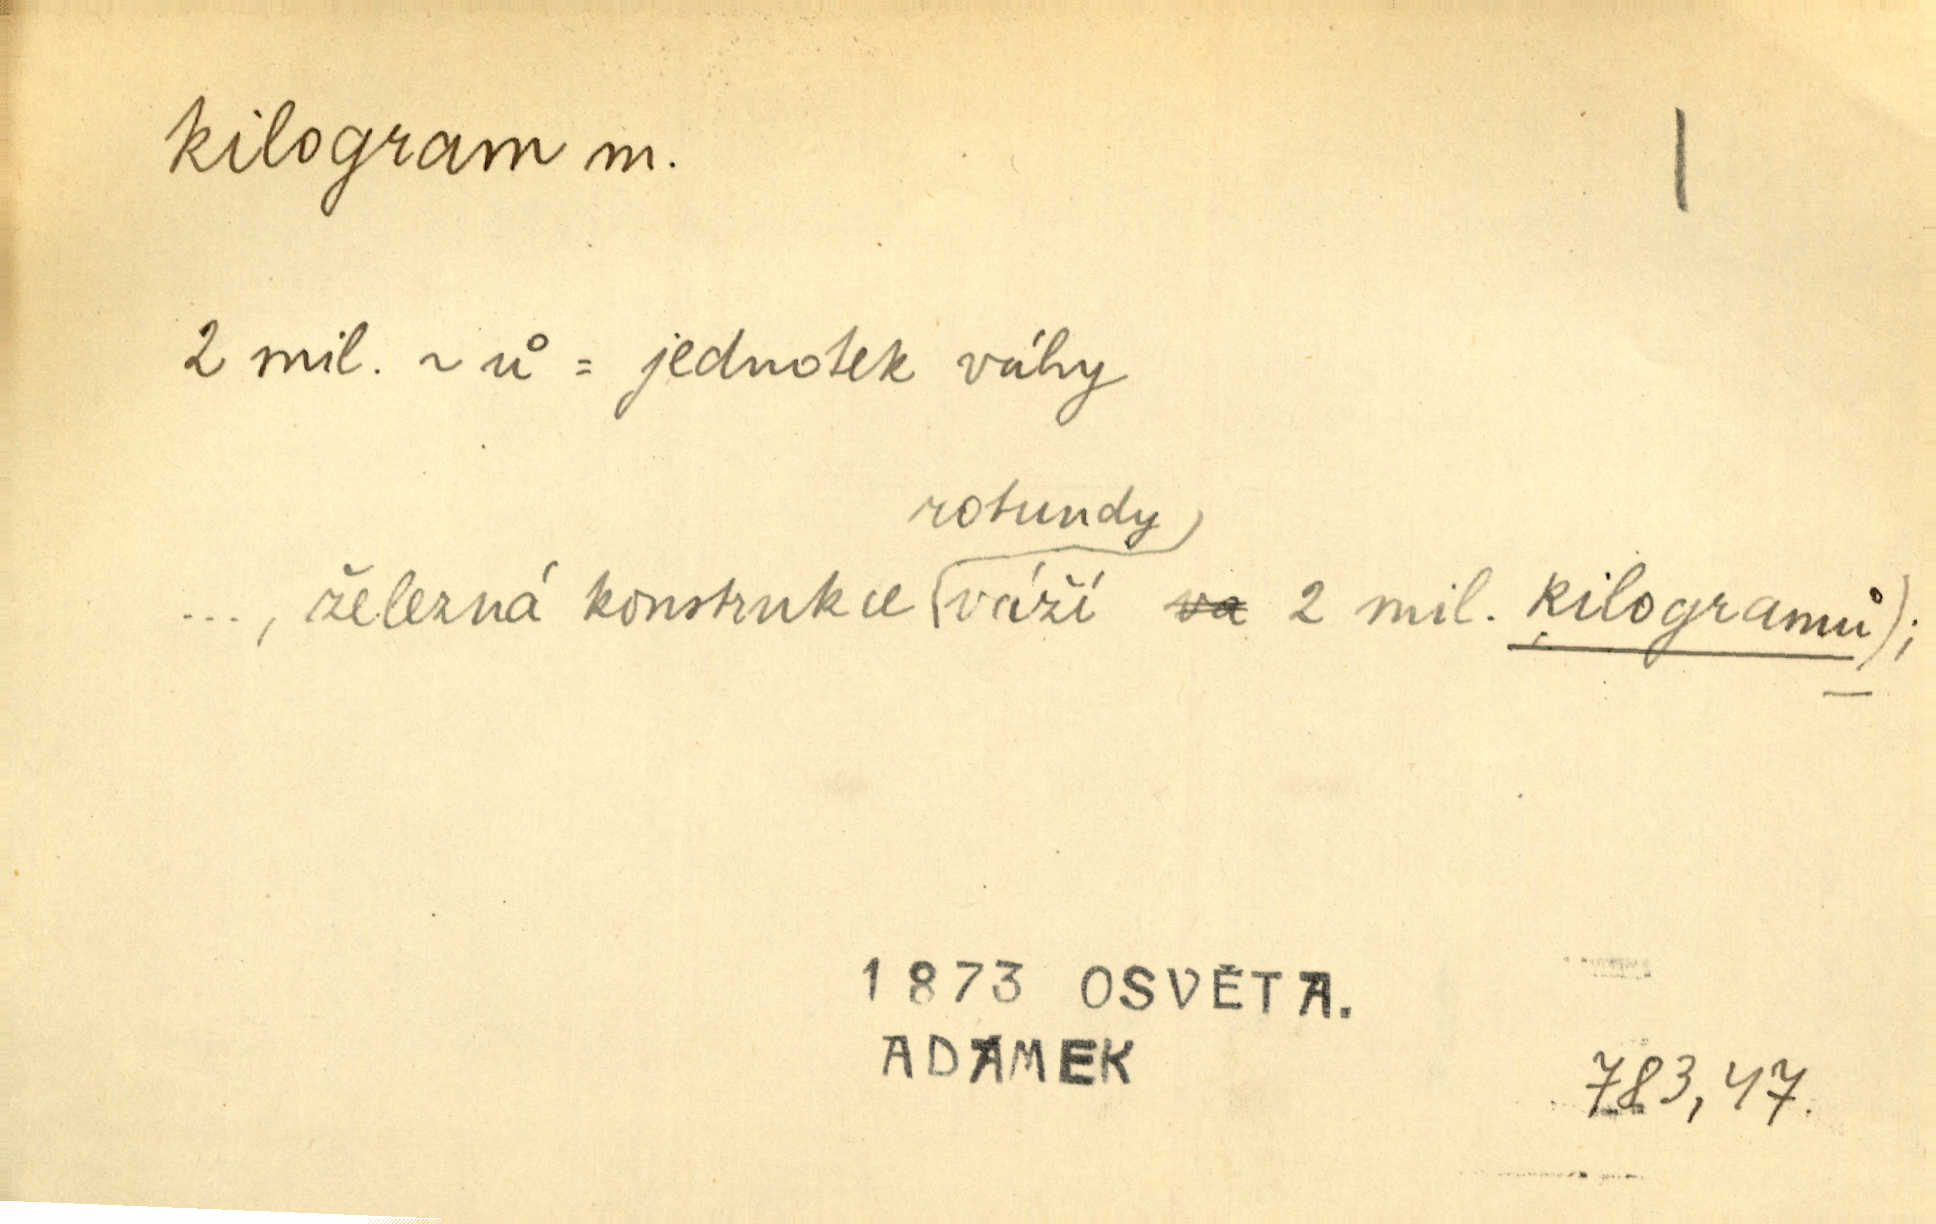 kilogram m.
2 mil. ~ů = jednotek váhy
rotundy
..., železná konstrukce (váží va 2 mil. kilogramů);
1873 OSVĚTA.
ADAMEK
783,47.